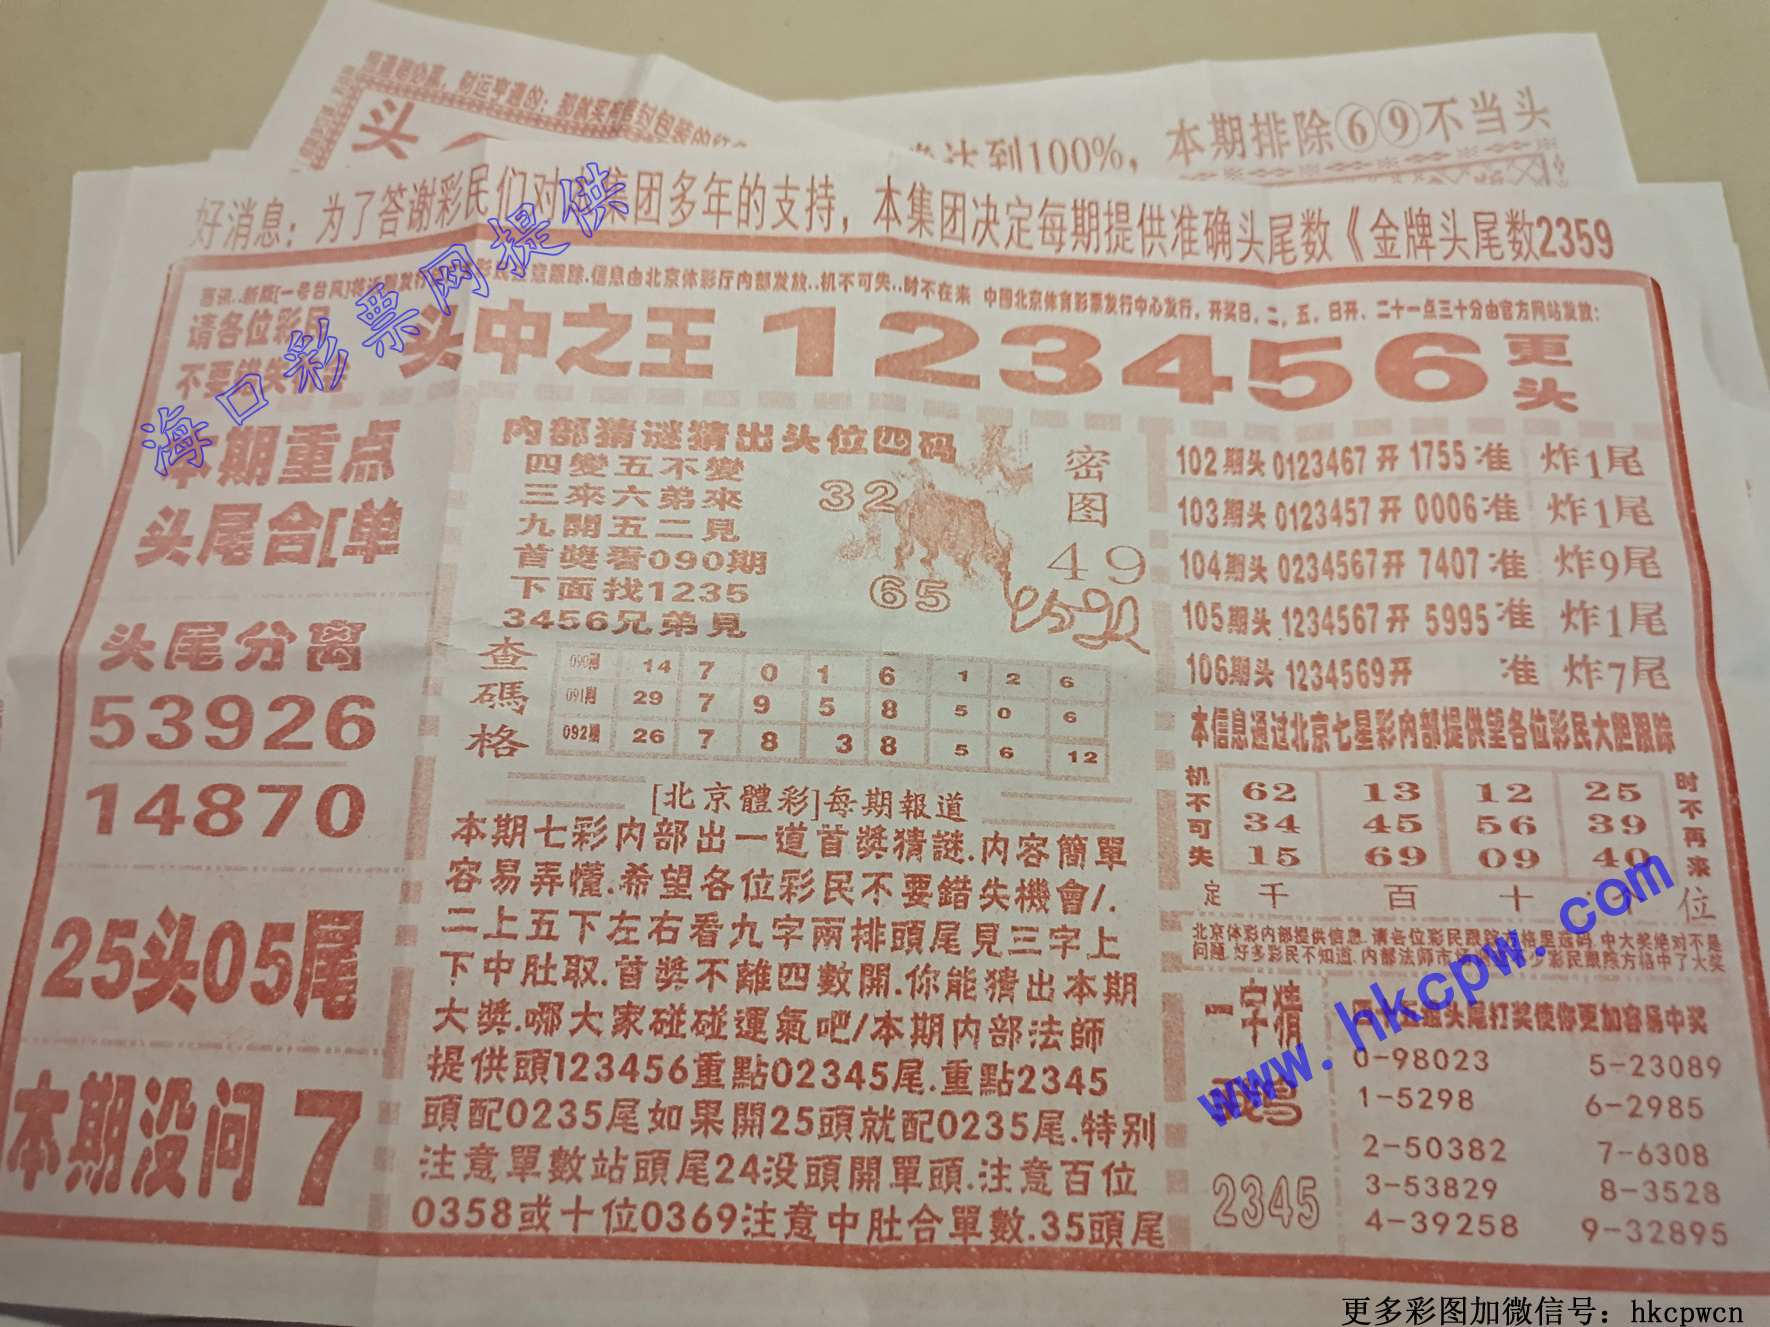 財运亨通的：那就买有
头
达到100%，本期排除⑥⑨不当头
好消息：为了答谢彩民们对 集团多年的支持，本集团决定每期提供准确头尾数《金牌头尾数2359
信息由北京体彩厅内部发放..机不可失..时不在来 中国北京体育彩票发行中心发行，开奖日，二，五，日开、二十一点三十分由官方网站发放：
请各位彩民
不要错失
头中之王 123456 更头
本期重点
头尾合[单
头尾分离
53926
14870
25头05尾
本期没问 7
内部猜谜猜出头位四码
四變五不變
三來六弟來
九開五二見
首獎看090期
下面找1235
3456兄弟見
密图
32
49
65
查碼格
090期 14 7 0 1 6 1 2 6
091期 29 7 9 5 8 5 0 6
092期 26 7 8 3 8 5 6 12
[北京體彩]每期報道
本期七彩内部出一道首獎猜謎.内容簡單
容易弄懂.希望各位彩民不要錯失機會/.
二上五下左右看九字兩排頭尾見三字上
下中肚取.首獎不離四數開.你能猜出本期
大獎.哪大家碰碰運氣吧/本期内部法師
提供頭123456重點02345尾.重點2345
頭配0235尾如果開25頭就配0235尾.特别
注意單數站頭尾24没頭開單頭.注意百位
0358或十位0369注意中肚合單數.35頭尾
102期头 0123467 开 1755 准 炸1尾
103期头 0123457 开 0006 准 炸1尾
104期头 0234567 开 7407 准 炸9尾
105期头 1234567 开 5995 准 炸1尾
106期头 1234569 开 准 炸7尾
本信息通过北京七星彩内部提供望各位彩民大胆跟踪
机不可失
62 13 12 25
34 45 56 39
15 69 09 40
时不再来
定 千 百 十 个 位
北京体彩内部提供信息.请各位彩民跟踪方格里选码.中大奖绝对不是
问题.好多彩民不知道.内部法师 多少彩民跟踪方格中了大奖
一字猜
2345
头尾打奖使你更加容易中奖
0-98023 5-23089
1-5298 6-2985
2-50382 7-6308
3-53829 8-3528
4-39258 9-32895
海口彩票网提供
www.hkcpw.com
更多彩图加微信号：hkcpwcn